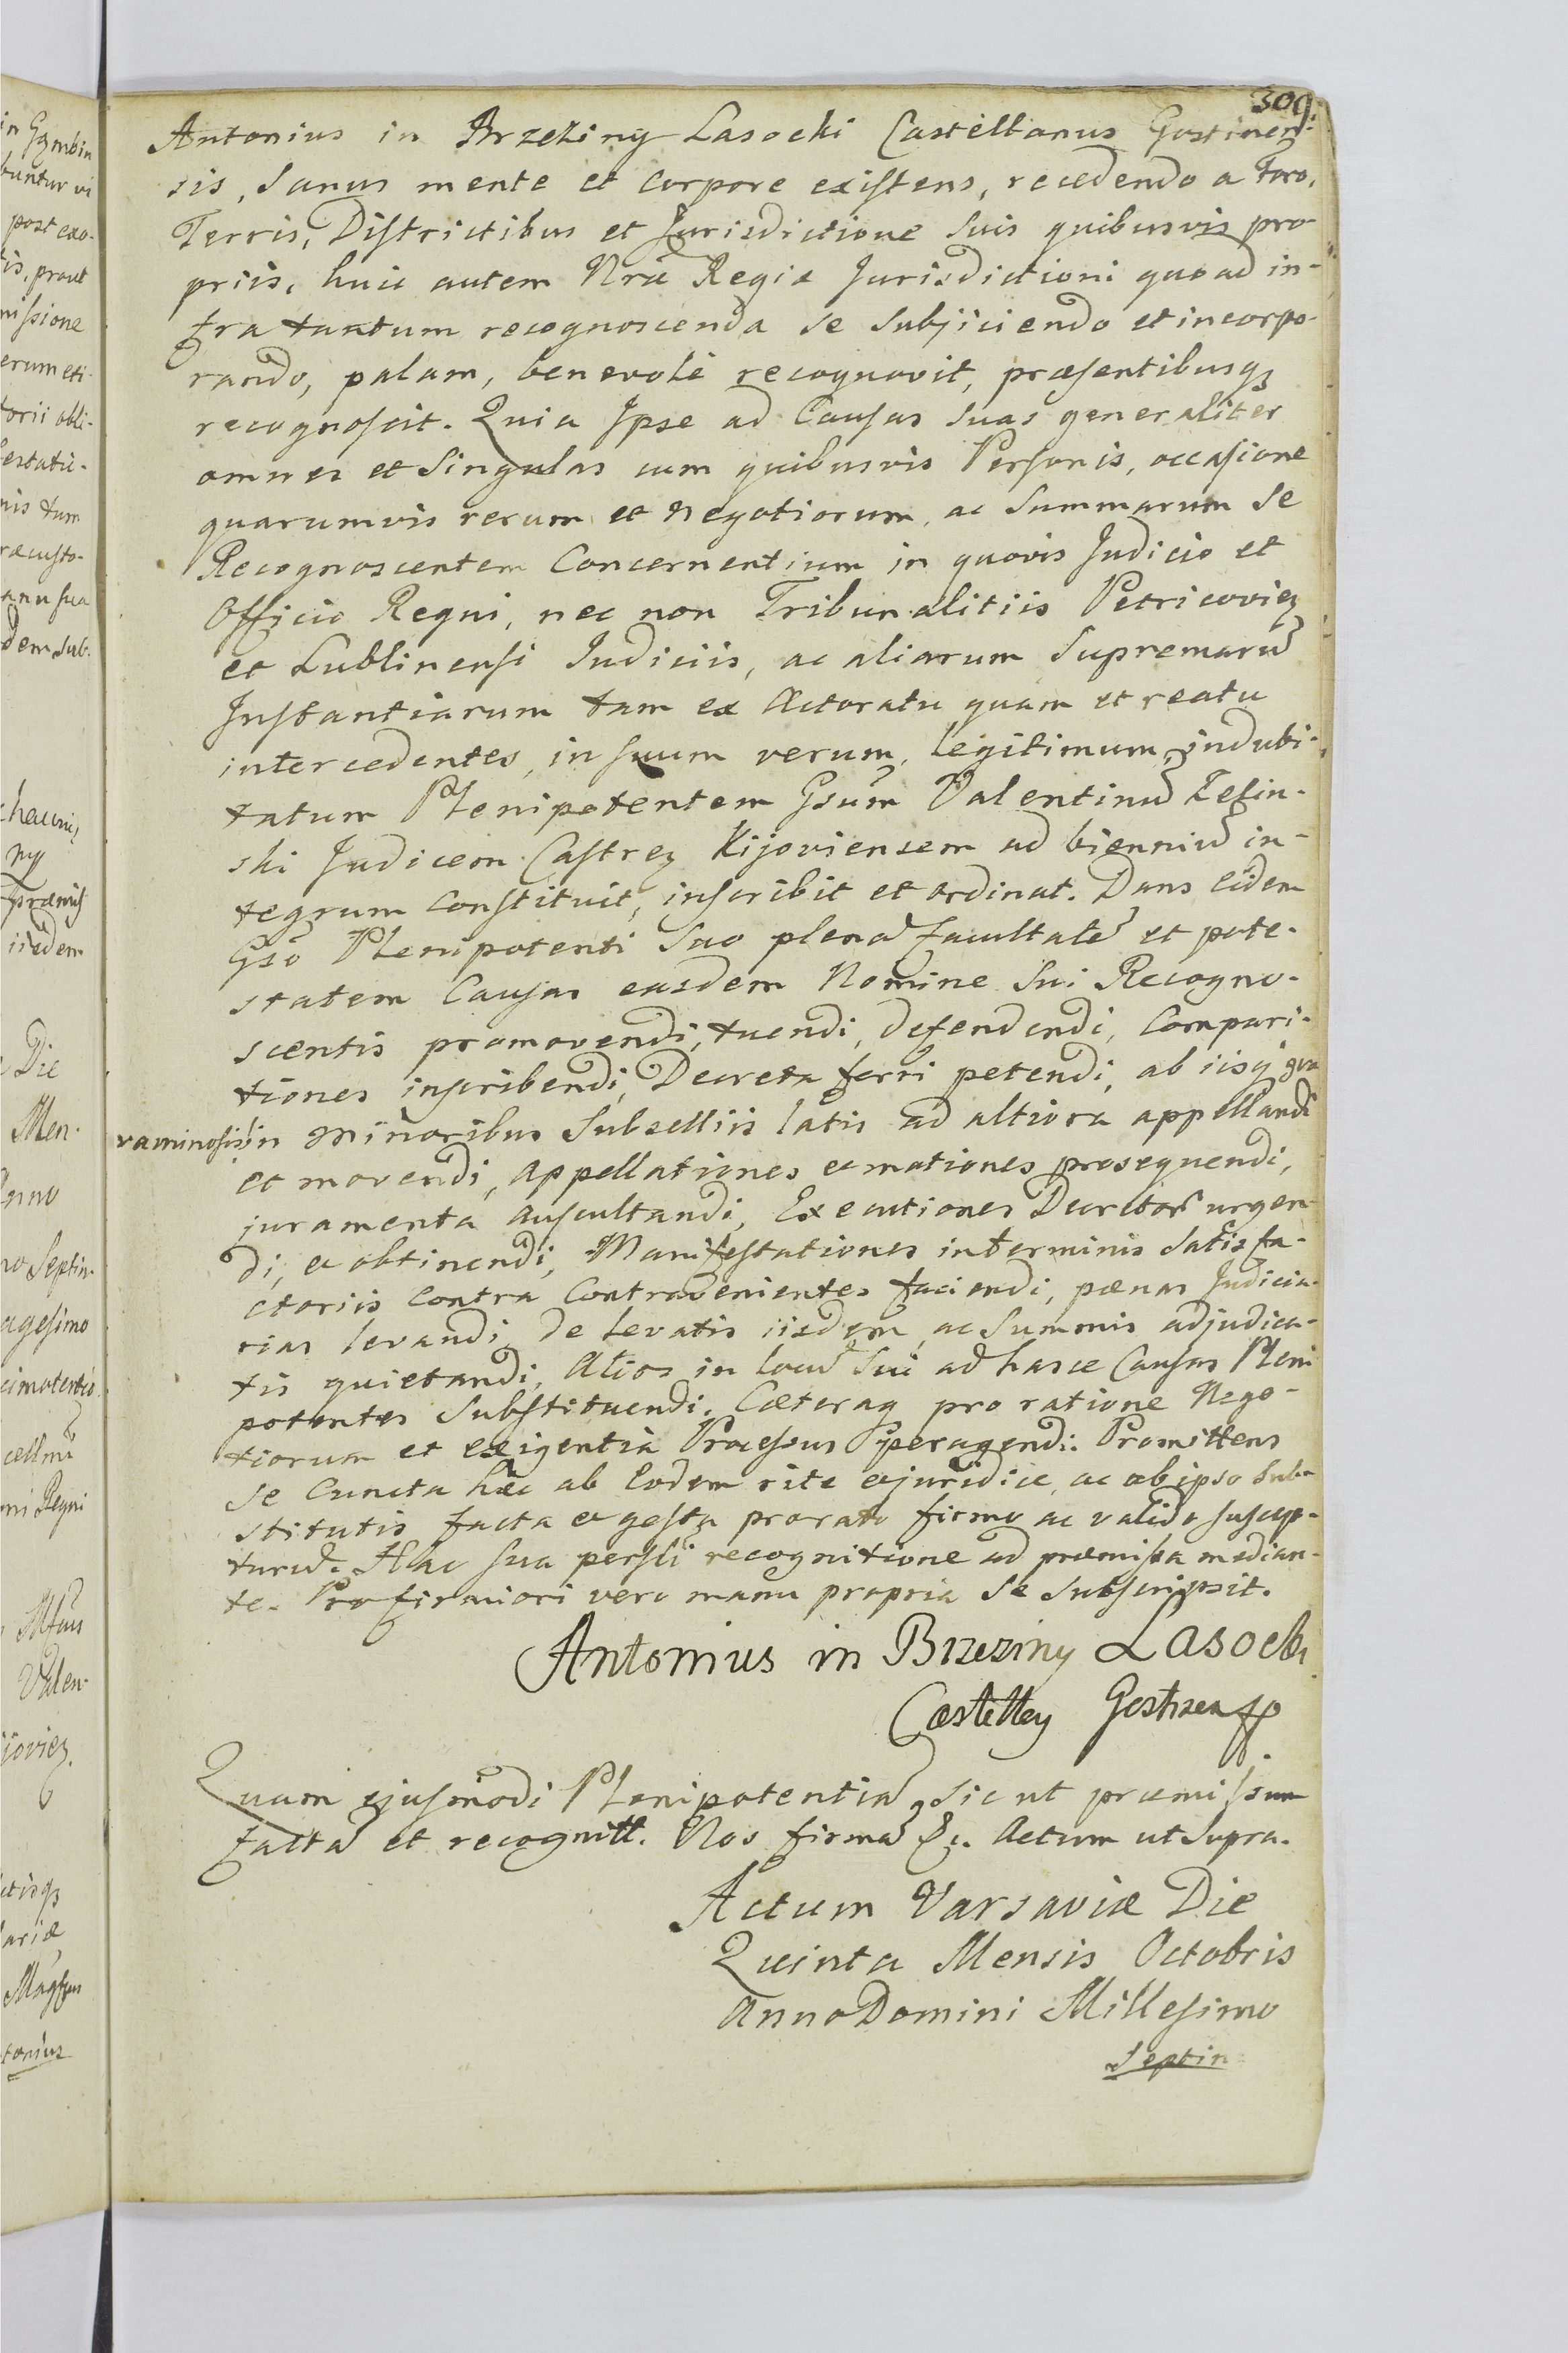 309.
Antonius in Brzeziny Lasocki Castellanus Gostinen-
sis, Sanus mente et corpore existens, recedendo a Foro,
Terris, Districtibus et Jurisdictione Suis quibusvis pro-
priis, huic autem Nrae Regiae Jurisdictioni quoad in-
fra tantum recognoscenda se Subjiciendo et incorpo-
rando, palam, benevole recognovit, praesentibusq3
recognoscit. Quia Ipse ad Causas suas generaliter
omnes et Singulas cum quibusvis Personis, occasione
quarumvis rerum et negotiorum, ac Summarum Se
Recognoscentem Concernentium in quovis Judicio et
Officio Regni, nec non Tribunalitiis Petricovien
et Lublinensi Judiciis, ac aliarum Supremarū
Instantiarum tam ex Actoratu quam et reatu
intercedentes, in suum verum, legitimum, indubi-
tatum Plenipotentem Gsum Valentinū Lesin-
ski Judicem Castren Kijoviensem ad bienniū in-
tegrum Constituit, inscribit et ordinat. Dans eidem
Gso Plenipotenti Suo plenā facultatē et pote-
statem Causas easdem Nomine Sui Recogno-
scentis promovendi, tuendi, defendendi, Compari-
tiones inscribendi, Decreta ferri petendi, ab iisq gra
vaminosis in minoribus Subselliis latis ad altiora appellandi
et movendi, appellationes et motiones prosequendi,
juramenta auscultandi, Executiones Decretor urgen-
di, et obtinendi, Manifestationes in terminis Satisfa-
ctoriis Contra Contravenientes faciendi, paenas Judicia-
rias levandi de levatis iisdem ac Summis adjudica-
tis quietandi, Alios in locū Sui ad hasce Causas Pleni
potentes Substituendi. Caeteraq pro ratione Nego-
tiorum et exigentia Processus peragendi. Promittens
Se Cuncta haec ab Eodem rite et juridice, ac ab ipso Sub-
stitutis facta et gesta pro rato firmo ac valido suscep-
turū. Hac sua persli recognitione ad praemissa median-
te. Pro firmiori vero manu propria Se Subscripsit.
Antonius in Brzeziny Lasocki
Castellan Gostinen mp
Quam ejusmodi Plenipotentiā Sic ut praemissum
factā et recognitt. Nos firmā &c. Actum ut Supra.
Actum Varsaviae Die
Quinta Mensis Octobris
Anno Domini Millesimo
Septin-